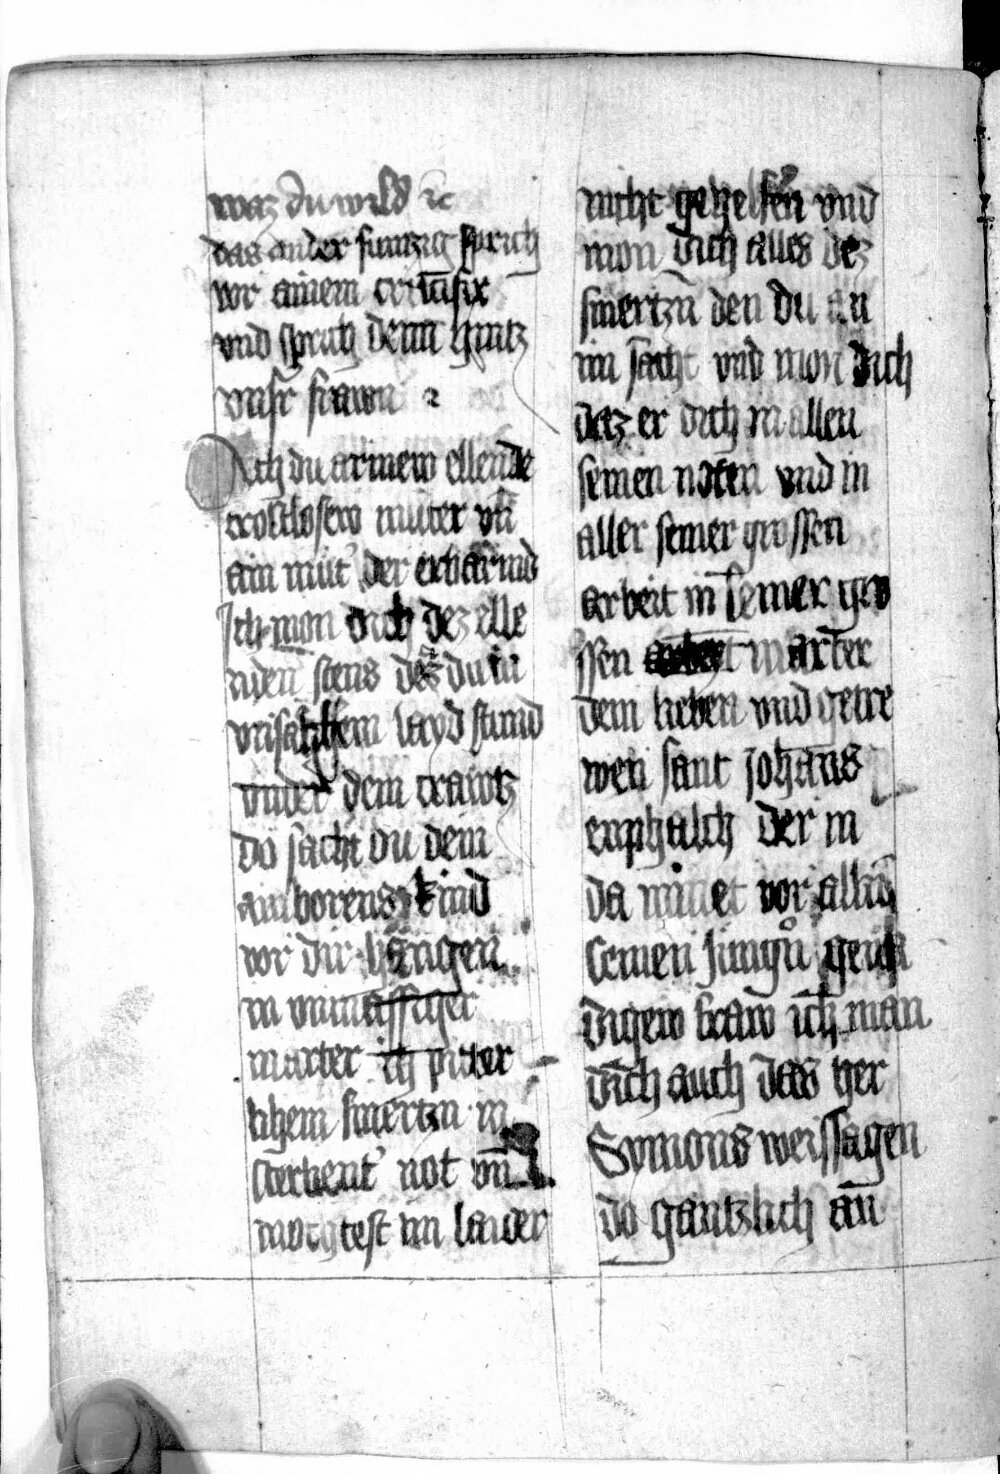 waz du wild ꝛc
das ander funzig sprich
vor ainem crucifix
vnd sprich denn hintz
vnsr frawn ꝛc
Ach du armew ellende
trostlosew muter vn̄
ain mut' der erbarmd
Ich mon dich dez elle
nden stens dez du in
vnsaglichem layd stund
vnder dem crawtz
do sacht du dein
ainborens kind
vor dir hangen
in vnmassiger
marter in pitter
lichem smertzn in
sterbent' not vn̄
mochtest im laider
nicht gehelfen vnd
mon dich alles dez
smertzn̄ den du an
im sacht vnd mon dich
daz er dich in allen
seinen noten vnd in
aller seiner grossen
arbeit in seiner gro
ssen marter
dem lieben vnd getre
wen sant Johans
enphalch der in
da minet vor alln̄
seinen Jungn̄ genk
digew fraw ich man
dich auch das her
Symons weissagen
do gantzlich an